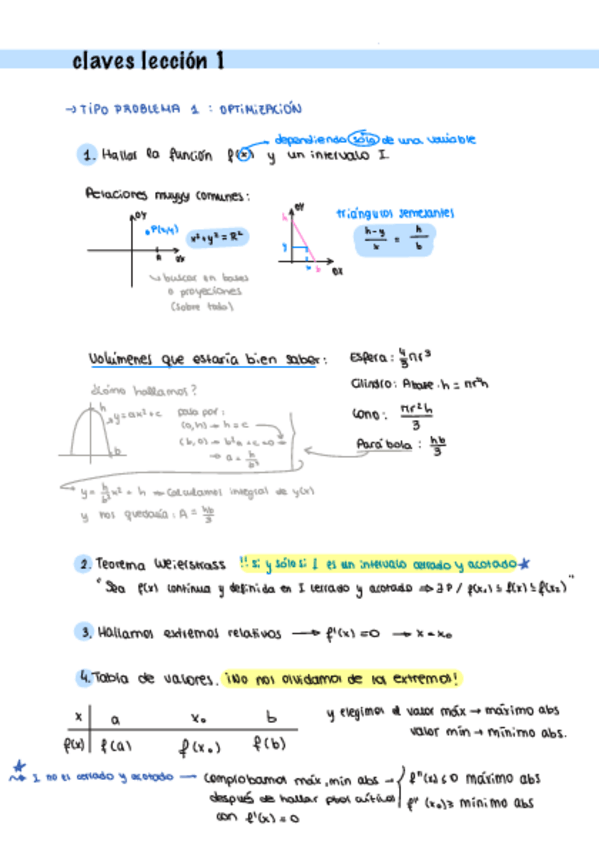 claves lección 1
→ TIPO PROBLEMA 1 : OPTIMIZACIÓN
dependiendo sólo de una variable
1. Hallar la función f(x) y un intervalo I
Relaciones muyyy comunes:
OY
P(x,y)
x²+y² = R²
R
OX
↳ buscar en bases
o proyecciones
(sobre todo)
OY
h
y
x
b
OX
triángulos semejantes
h-y/x = h/b
Volúmenes que estaría bien saber:
Esfera: 4/3 πr³
Cilindro: Abase · h = πr²h
Cono: πr²h/3
Parábola: hb/3
¿Cómo hallamos?
h
y=ax²+c
b
pasa por:
(0,h) → h=c
(b,0) → b²a+c=0
→ a = h/b²
y = h/b² x² + h → Calculamos integral de y(x)
y nos quedaría: A = hb/3
2. Teorema Weierstrass !! si y sólo si I es un intervalo cerrado y acotado ★
"Sea f(x) continua y definida en I cerrado y acotado ⇒ ∃ P / f(x₁) ≤ f(x) ≤ f(x₂)"
3. Hallamos extremos relativos → f'(x)=0 → x=x₀
4. Tabla de valores. ¡No nos olvidamos de los extremos!
x a x₀ b
f(x) f(a) f(x₀) f(b)
y elegimos el valor máx → máximo abs
valor mín → mínimo abs.
★
I no es cerrado y acotado → comprobamos máx, min abs
después de hallar ptos críticos
con f'(x)=0
f''(x)≤0 máximo abs
f'' (x₀)≥ mínimo abs